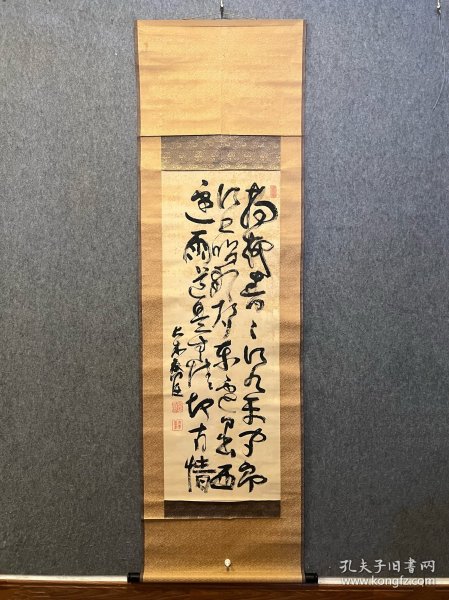 楊柳青々江水平聞郎
江上唱歌声東邊日出西
邊雨道是無情却有情
孔夫子旧书网
www.kongfz.com